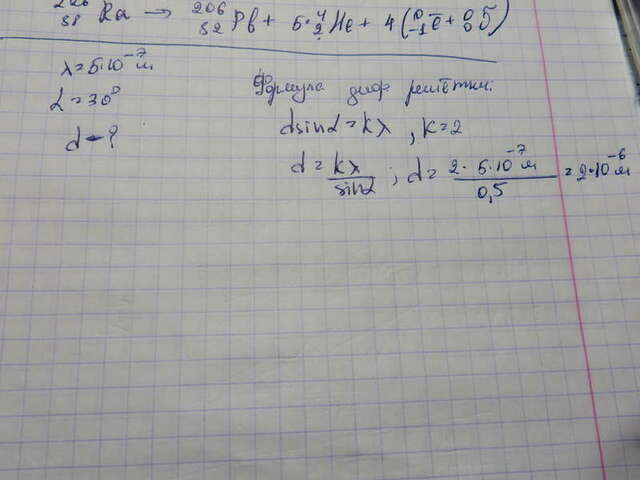 ²²⁶₈₈Ra → ²⁰⁶₈₂Pb + 5·⁴₂He + 4(⁰₋₁e̅ + ⁰₀ν̃)
λ=5·10⁻⁷м
α=30°
d - ?
Формула диф решётки:
dsinα=kλ, k=2
d = kλ/sinα ; d = 2·5·10⁻⁷м/0,5 = 2·10⁻⁶м